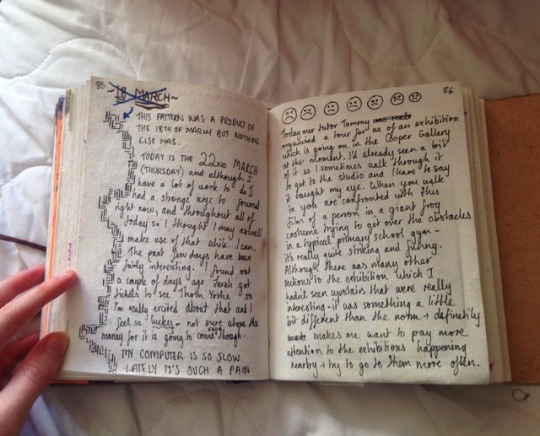 85
18 MARCH~
THIS PATTERN WAS A PRODUCT OF
THE 18TH OF MARCH BUT NOTHING
ELSE WAS.
TODAY IS THE 22ND MARCH
(THURSDAY) and although I
have a lot of work to do I
had a strange urge to journal
right now, and throughout all of
today so I thought I may as well
make use of that while I can.
The past few days have been
fairly interesting. I found out
a couple of days ago Sarah got
tickets to see Thom Yorke so
I'm really excited about that and I
feel so lucky - not sure where the
money for it is going to come from though -
MY COMPUTER IS SO SLOW
LATELY IT'S SUCH A PAIN
86
Today our tutor Tommy
organised a tour for us of an exhibition
which is going on in the Cooper Gallery
at the moment. I'd already seen a bit
of it as I sometimes walk through it
to get to the studio and I have to say
it caught my eye. When you walk
in you are confronted with this
film of a person in a giant frog
costume trying to get over the obstacles
in a typical primary school gym -
it's really quite striking and funny.
Although there was many other
sections to the exhibition which I
hadn't seen upstairs that were really
interesting - it was something a little
bit different than the norm + definitely
makes me want to pay more
attention to the exhibitions happening
nearby + try to go to them more often.